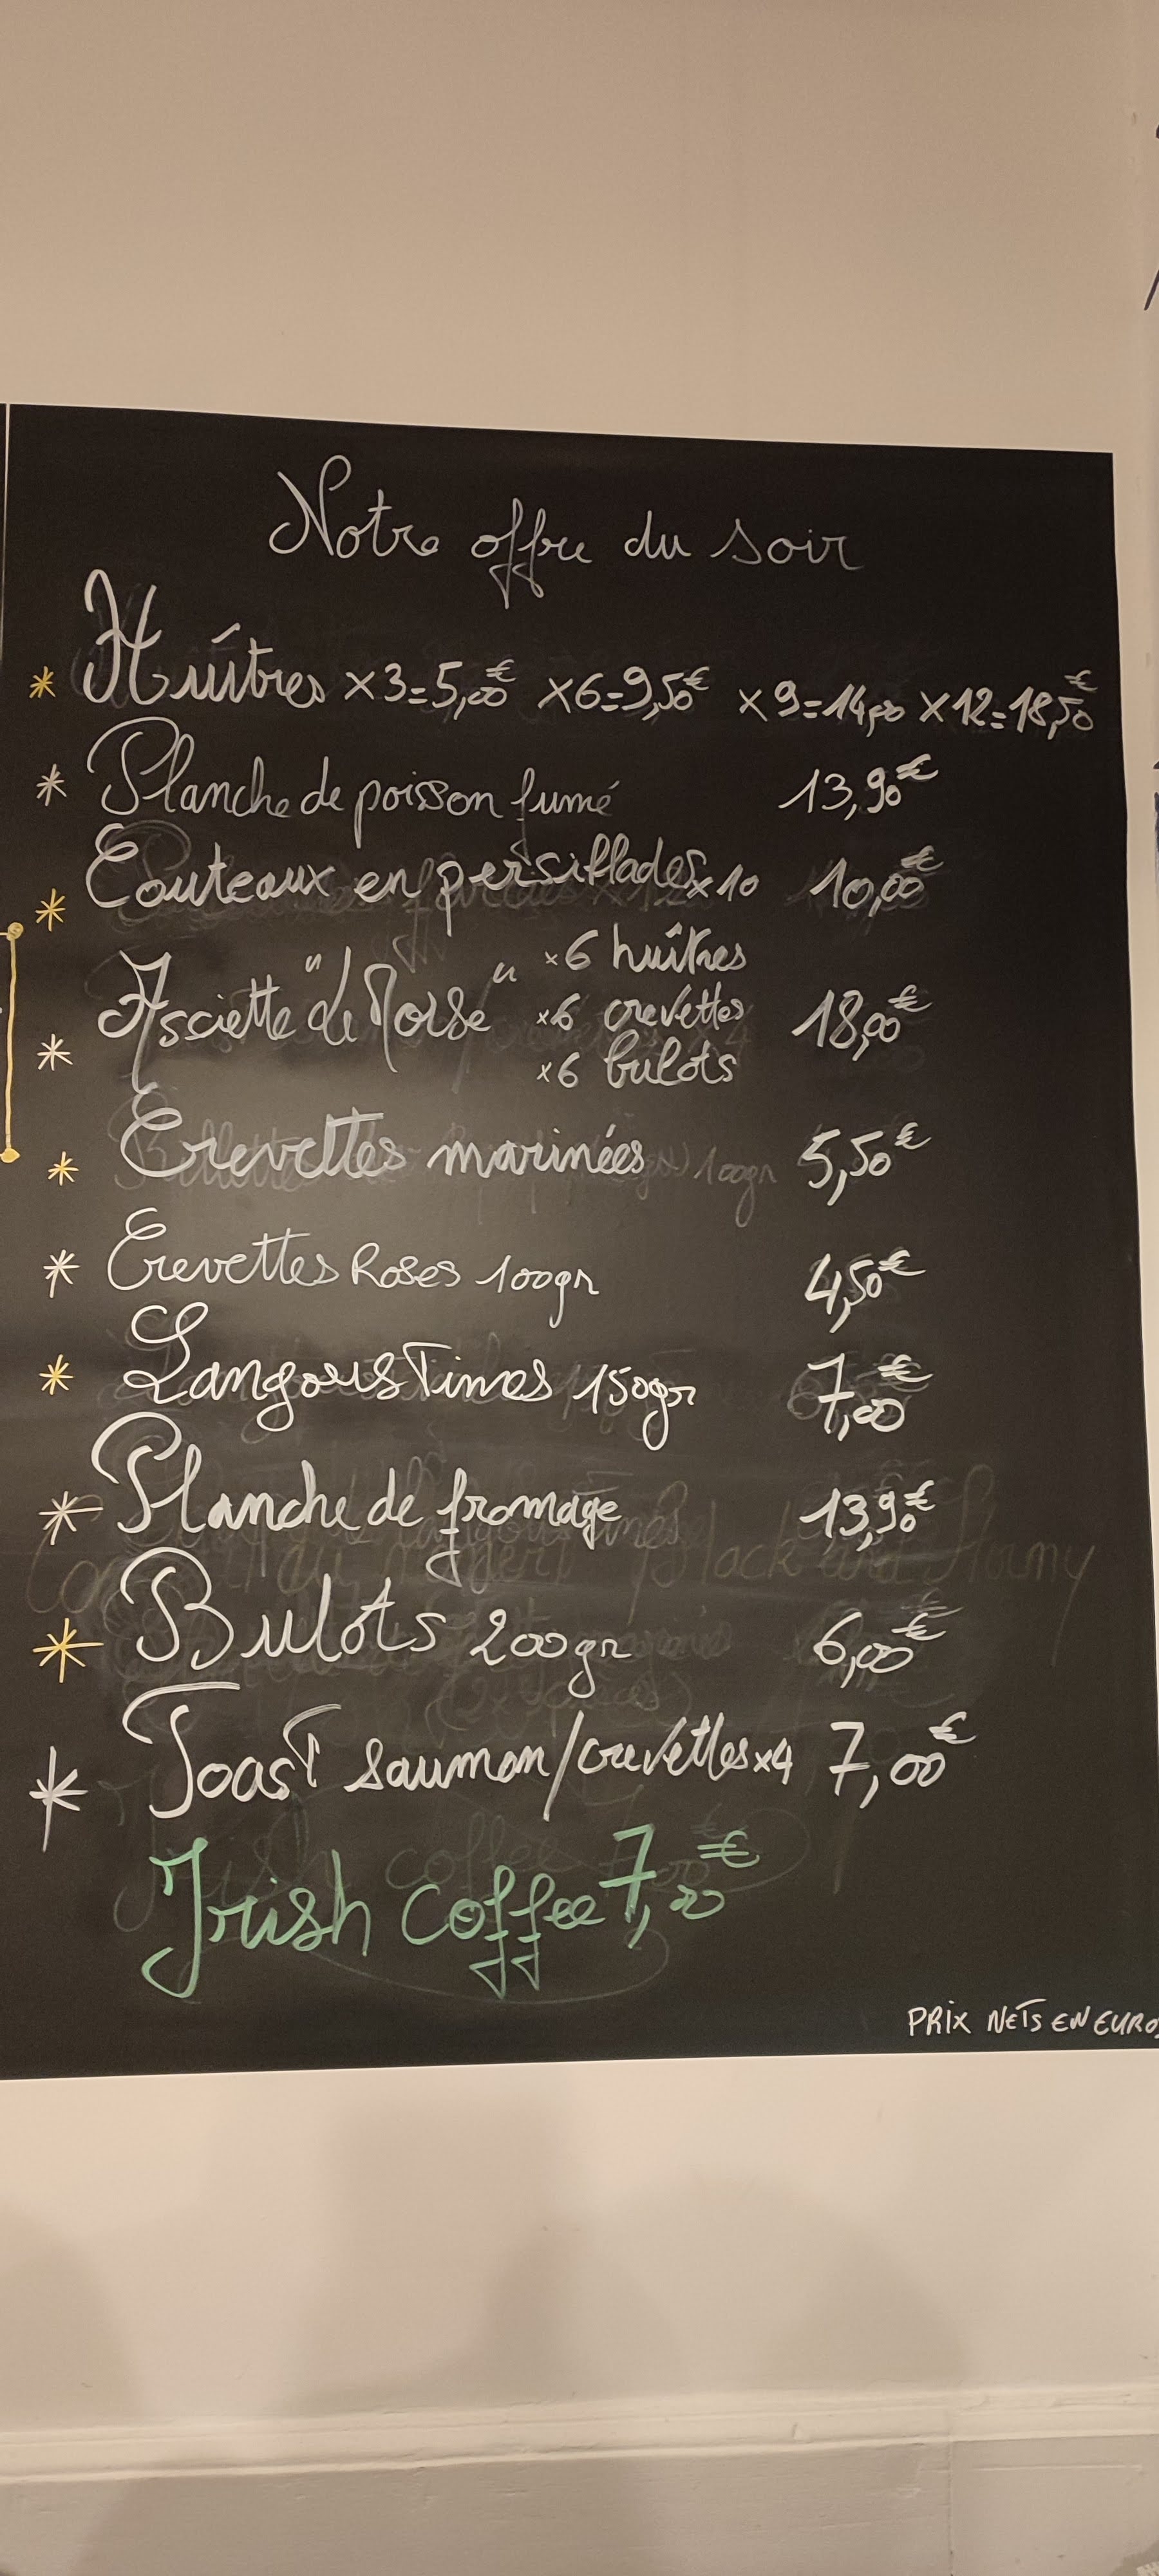 Notre offre du soir
* Huîtres x3=5,00€ x6=9,50€ x9=14,00 x12=18,50€
* Planche de poisson fumé 13,90€
* Couteaux en persilllades x10 10,00€
x6 huîtres
* Assiette "Le Morse" x6 crevettes 18,00€
x6 bulots
* Crevettes marinées 5,50€
* Crevettes Roses 100gr 4,50€
* Langoustines 150gr 7,00€
* Planche de fromage 13,90€
* Bulots 200gr 6,00€
* Toast saumon/crevettes x4 7,00€
Irish coffee 7,00€
PRIX NETS EN EUROS